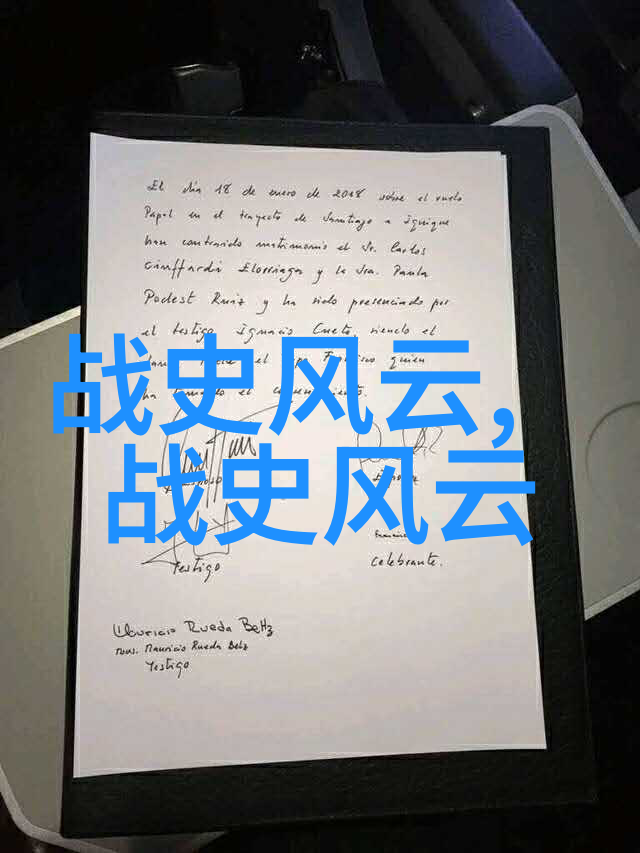 El día 18 de enero de 2018 sobre el vuelo
Papal en el trayecto de Santiago a Iquique
han contraido matrimonio el Sr. Carlos
Ciuffardi Elorriaga y la Sra. Paula
Podest Ruiz y ha sido presenciado por
el testigo Ignacio Cueto, siendo el
el Papa Francisco quien
ha el
战史风云,
战史风云
Testigo
Celebrante.
Mauricio Rueda Beltz
Mons. Mauricio Rueda Beltz
Testigo